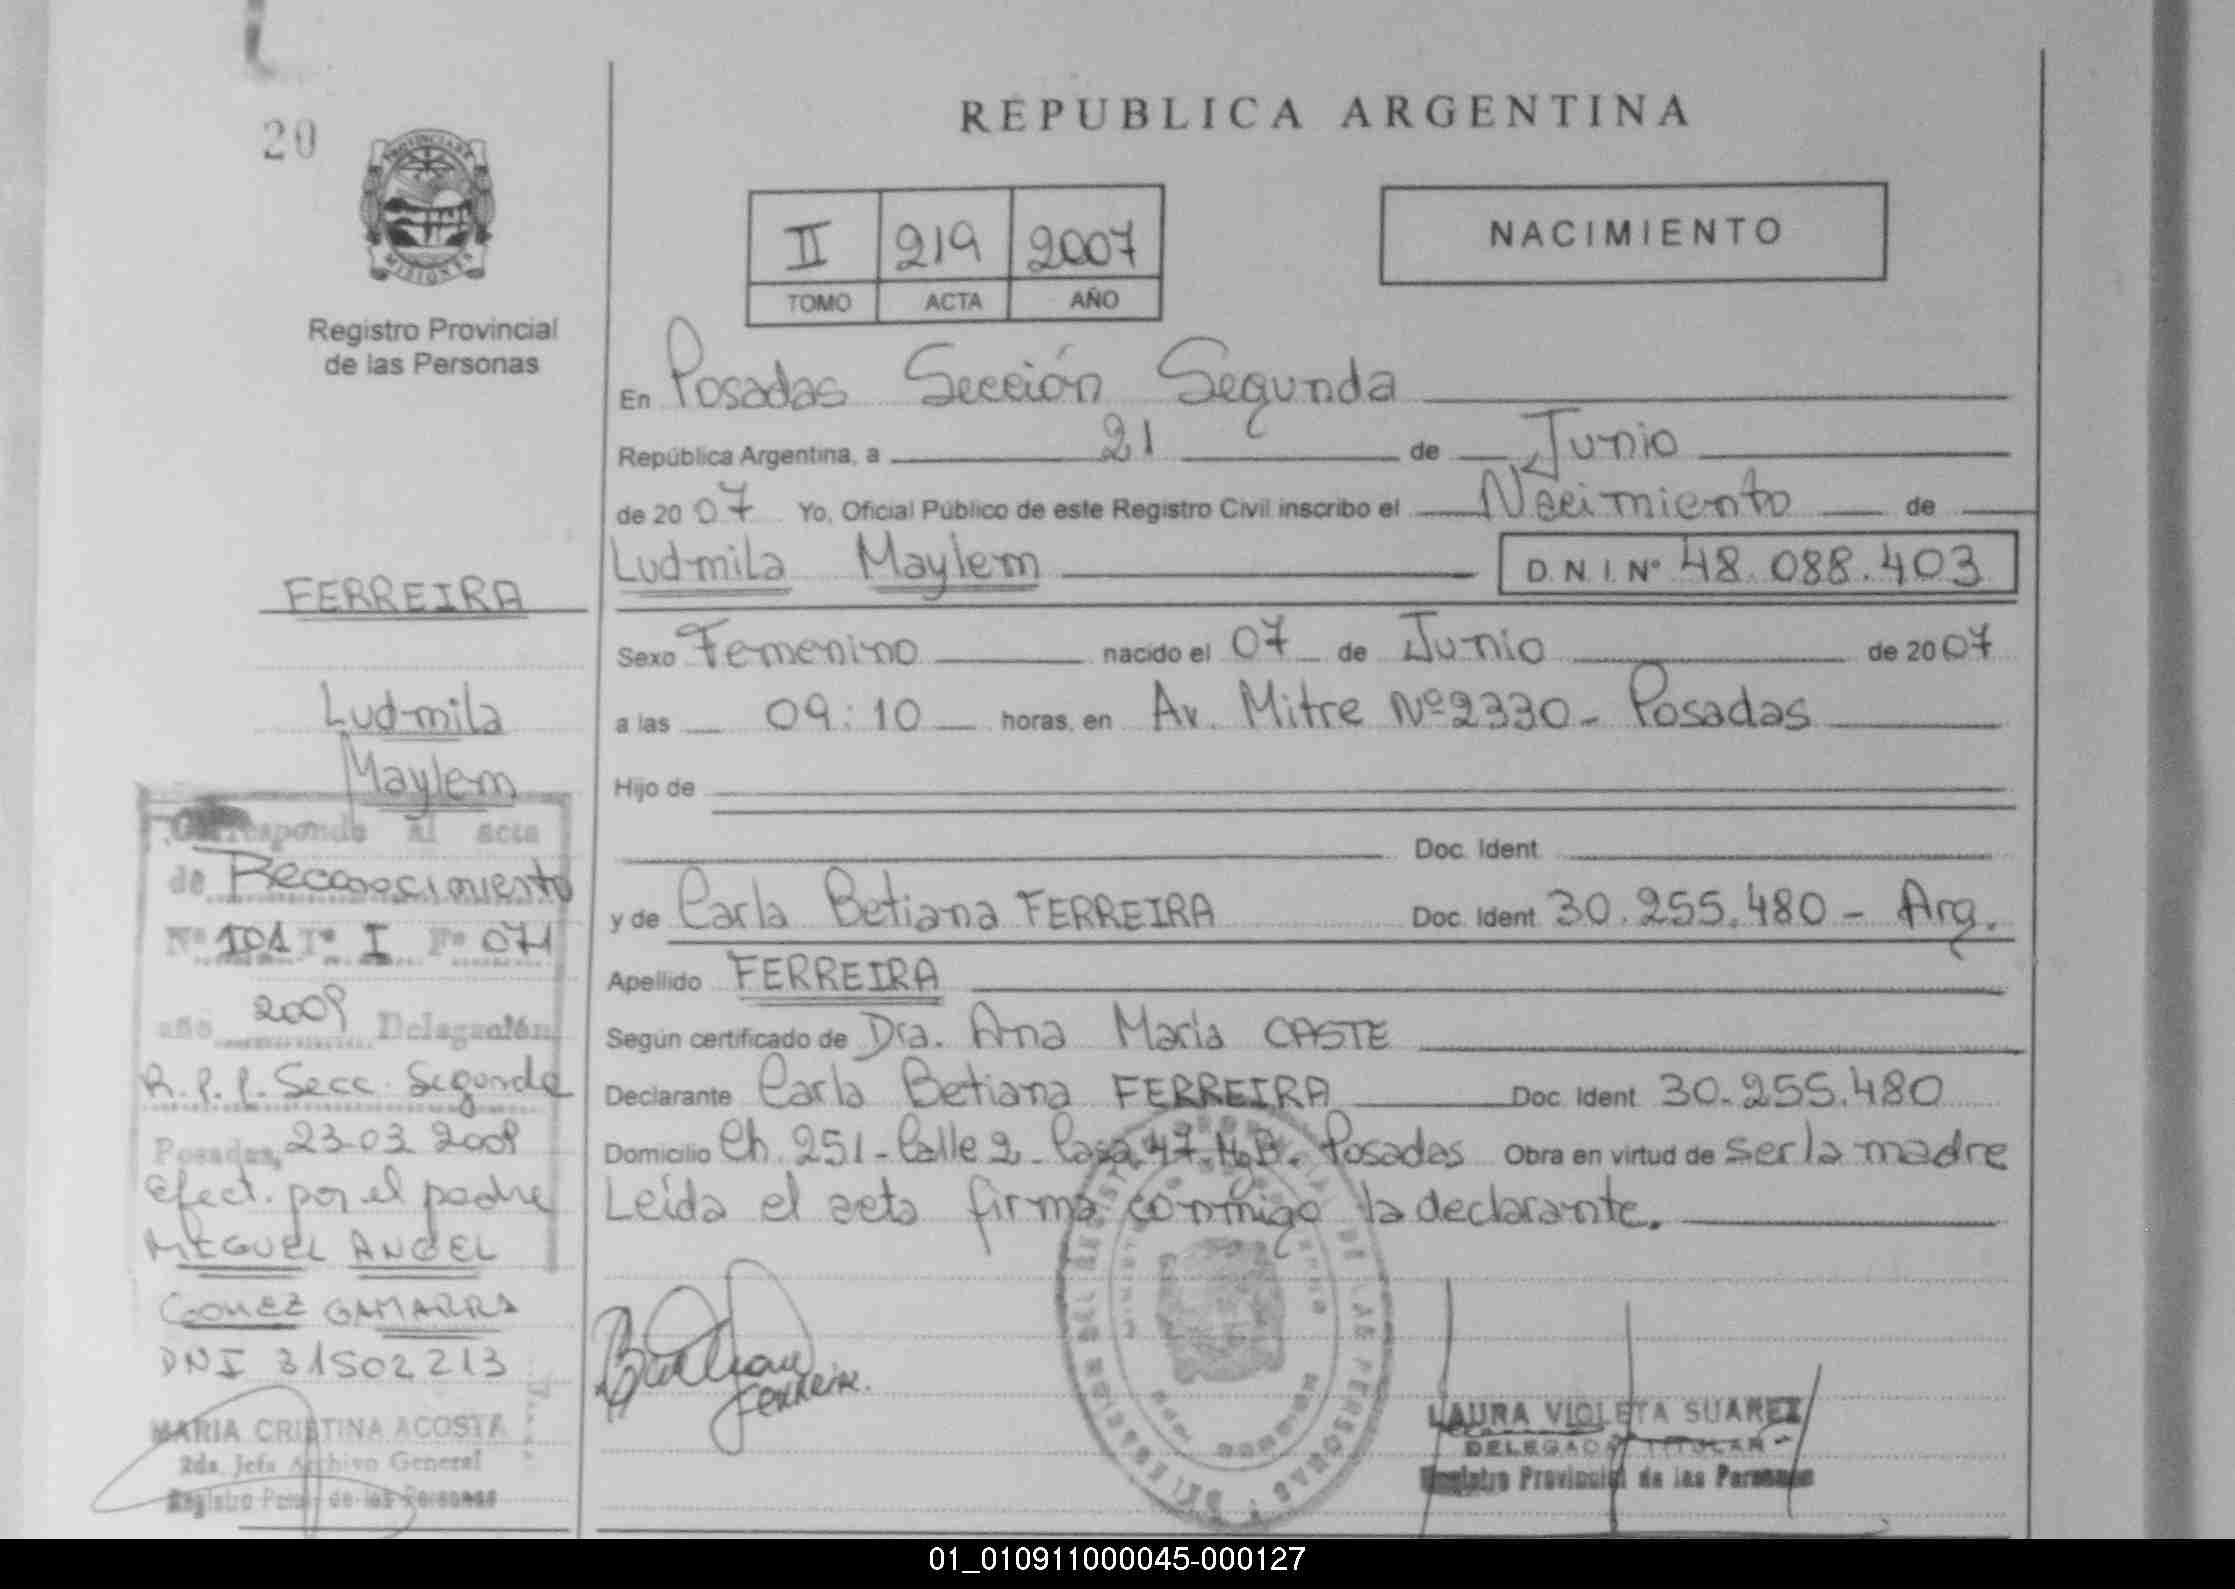 20
PROVINCIA DE
MISIONES
Registro Provincial
de las Personas
FERREIRA
Ludmila
Maylem
Corresponde al acta
de Reconocimiento
Nº 101 Tº I Fº 071
año 2009 Delegación
R.P.P. Secc. Segunda
Posadas, 23-03 2009
Efect. por el padre
MIGUEL ANGEL
GOMEZ GAMARRA
DNI 31502213
MARIA CRISTINA ACOSTA
2da. Jefa Archivo General
Registro de las Personas
REPUBLICA ARGENTINA
II 219 2007
TOMO ACTA AÑO
NACIMIENTO
En Posadas Sección Segunda
República Argentina, a 21 de Junio
de 2007 Yo, Oficial Público de este Registro Civil inscribo el Nacimiento de
Ludmila Maylem D.N.I. Nº 48.088.403
Sexo Femenino nacido el 07 de Junio de 2007
a las 09:10 horas, en Av. Mitre Nº 2330 - Posadas
Hijo de
Doc. Ident.
y de Carla Betiana FERREIRA Doc. Ident. 30.255.480 - Arg.
Apellido FERREIRA
Según certificado de Dra. Ana María CASTE
Declarante Carla Betiana FERREIRA Doc. Ident. 30.255.480
Domicilio Ch. 251 - Calle 2 - Casa 47 - Posadas Obra en virtud de ser la madre
Leída el acta firma conmigo la declarante.
Ferreira.
LAURA VIOLETA SUAREZ
DELEGADA TITULAR
Registro Provincial de las Personas
01_010911000045-000127